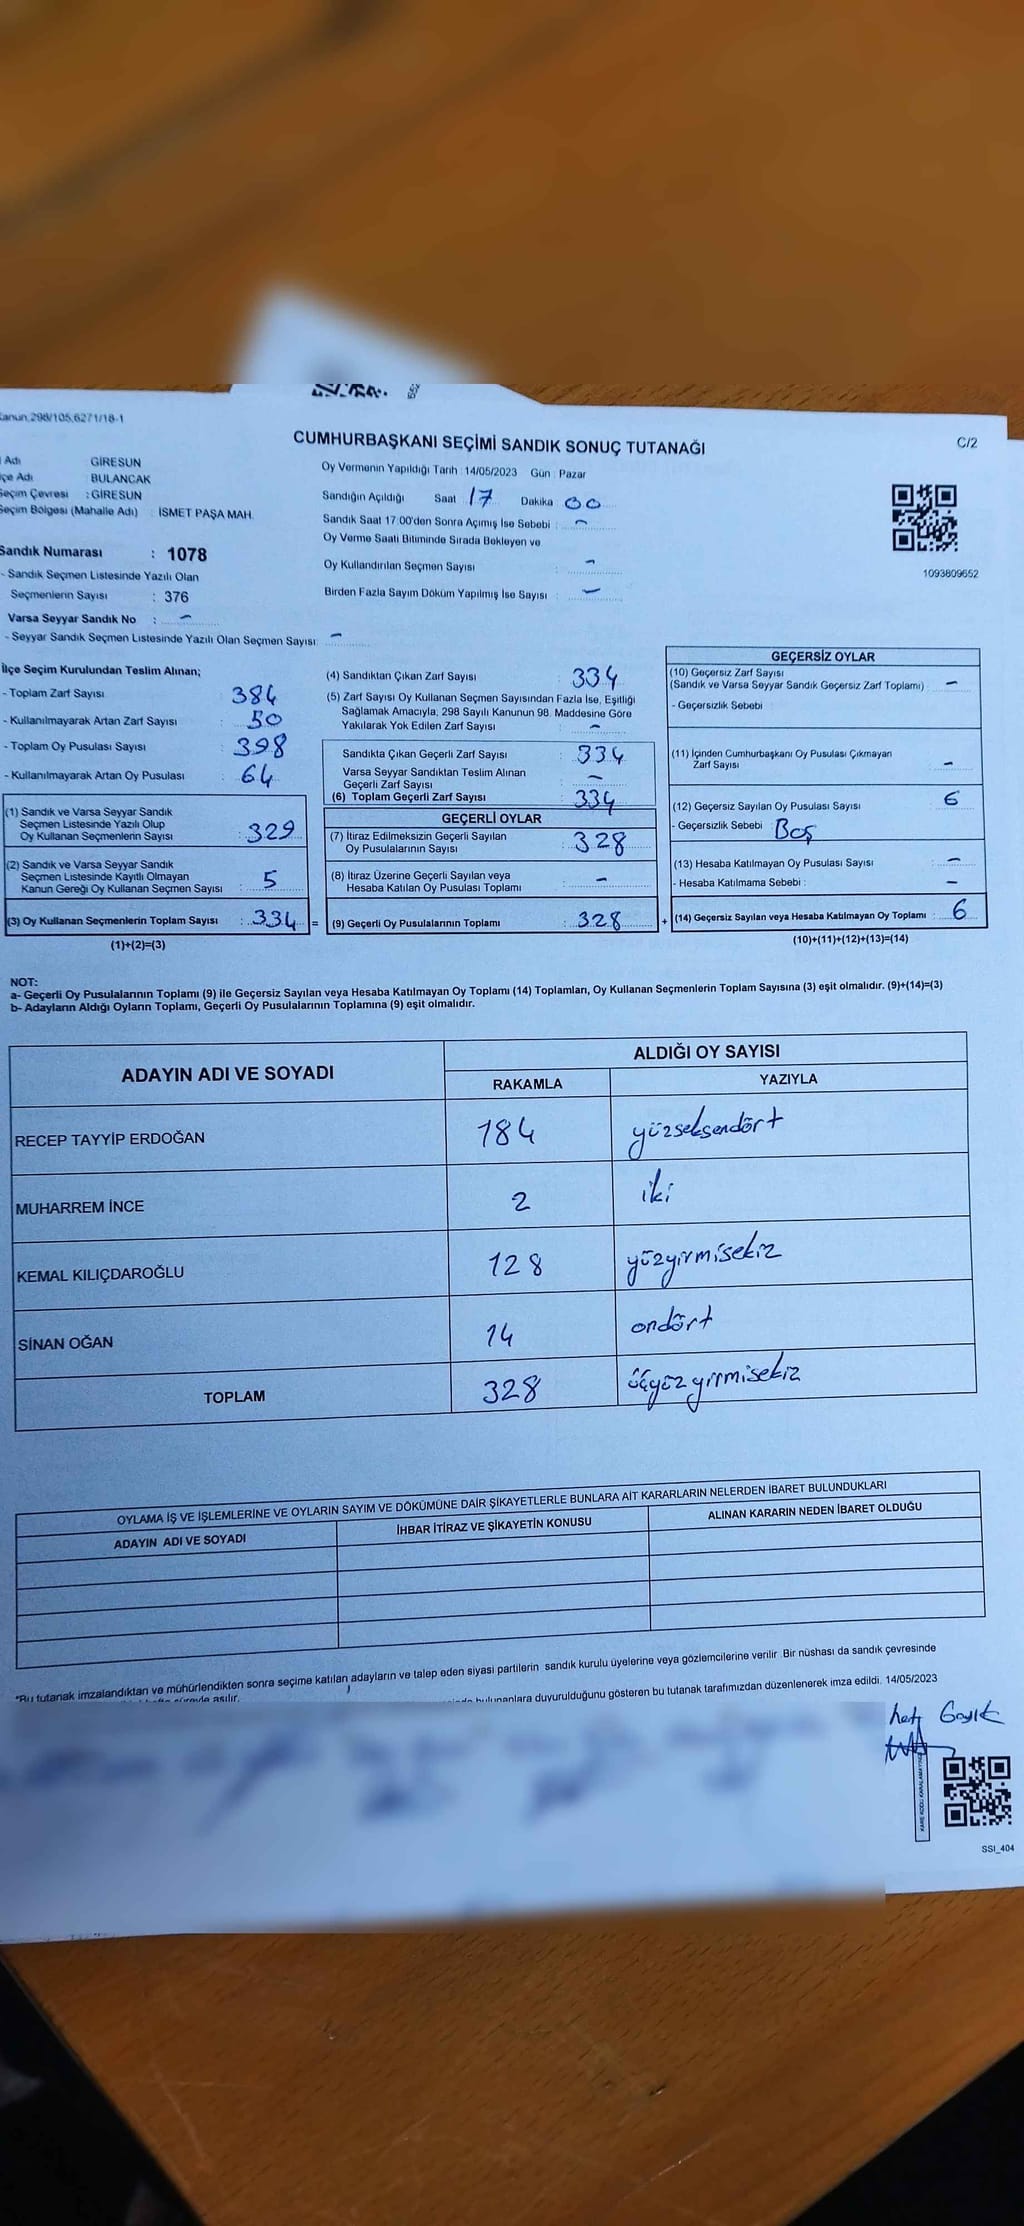 Kanun,298/105,6271/18-1
C/2
CUMHURBAŞKANI SEÇİMİ SANDIK SONUÇ TUTANAĞI
Adı GİRESUN
çe Adı BULANCAK
Seçim Çevresi : GİRESUN
Seçim Bölgesi (Mahalle Adı) : İSMET PAŞA MAH.
Sandık Numarası : 1078
- Sandık Seçmen Listesinde Yazılı Olan
Seçmenlerin Sayısı : 376
Varsa Seyyar Sandık No : -
- Seyyar Sandık Seçmen Listesinde Yazılı Olan Seçmen Sayısı: -
Oy Vermenin Yapıldığı Tarih : 14/05/2023 Gün : Pazar
Sandığın Açıldığı Saat 17 Dakika 00
Sandık Saat 17:00'den Sonra Açımış İse Sebebi : -
Oy Verme Saati Bitiminde Sırada Bekleyen ve
Oy Kullandırılan Seçmen Sayısı : -
Birden Fazla Sayım Döküm Yapılmış İse Sayısı : -
1093809652
İlçe Seçim Kurulundan Teslim Alınan;
- Toplam Zarf Sayısı : 384
- Kullanılmayarak Artan Zarf Sayısı : 50
- Toplam Oy Pusulası Sayısı : 398
- Kullanılmayarak Artan Oy Pusulası : 64
(1) Sandık ve Varsa Seyyar Sandık
Seçmen Listesinde Yazılı Olup
Oy Kullanan Seçmenlerin Sayısı : 329
(2) Sandık ve Varsa Seyyar Sandık
Seçmen Listesinde Kayıtlı Olmayan
Kanun Gereği Oy Kullanan Seçmen Sayısı : 5
(3) Oy Kullanan Seçmenlerin Toplam Sayısı : 334 =
(1)+(2)=(3)
(4) Sandıktan Çıkan Zarf Sayısı : 334
(5) Zarf Sayısı Oy Kullanan Seçmen Sayısından Fazla İse, Eşitliği
Sağlamak Amacıyla, 298 Sayılı Kanunun 98. Maddesine Göre
Yakılarak Yok Edilen Zarf Sayısı : -
Sandıkta Çıkan Geçerli Zarf Sayısı : 334
Varsa Seyyar Sandıktan Teslim Alınan
Geçerli Zarf Sayısı : -
(6) Toplam Geçerli Zarf Sayısı : 334
GEÇERLİ OYLAR
(7) İtiraz Edilmeksizin Geçerli Sayılan
Oy Pusulalarının Sayısı : 328
(8) İtiraz Üzerine Geçerli Sayılan veya
Hesaba Katılan Oy Pusulası Toplamı : -
(9) Geçerli Oy Pusulalarının Toplamı : 328 +
GEÇERSİZ OYLAR
(10) Geçersiz Zarf Sayısı
(Sandık ve Varsa Seyyar Sandık Geçersiz Zarf Toplamı) : -
- Geçersizlik Sebebi :
(11) İçinden Cumhurbaşkanı Oy Pusulası Çıkmayan
Zarf Sayısı : -
(12) Geçersiz Sayılan Oy Pusulası Sayısı : 6
- Geçersizlik Sebebi : Boş
(13) Hesaba Katılmayan Oy Pusulası Sayısı : -
- Hesaba Katılmama Sebebi : -
(14) Geçersiz Sayılan veya Hesaba Katılmayan Oy Toplamı : 6
(10)+(11)+(12)+(13)=(14)
NOT:
a- Geçerli Oy Pusulalarının Toplamı (9) ile Geçersiz Sayılan veya Hesaba Katılmayan Oy Toplamı (14) Toplamları, Oy Kullanan Seçmenlerin Toplam Sayısına (3) eşit olmalıdır. (9)+(14)=(3)
b- Adayların Aldığı Oyların Toplamı, Geçerli Oy Pusulalarının Toplamına (9) eşit olmalıdır.
ADAYIN ADI VE SOYADI ALDIĞI OY SAYISI
RAKAMLA YAZIYLA
RECEP TAYYİP ERDOĞAN 184 yüzseksendört
MUHARREM İNCE 2 iki
KEMAL KILIÇDAROĞLU 128 yüzyirmisekiz
SİNAN OĞAN 14 ondört
TOPLAM 328 üçyüzyirmisekiz
OYLAMA İŞ VE İŞLEMLERİNE VE OYLARIN SAYIM VE DÖKÜMÜNE DAİR ŞİKAYETLERLE BUNLARA AİT KARARLARIN NELERDEN İBARET BULUNDUKLARI
ADAYIN ADI VE SOYADI İHBAR İTİRAZ VE ŞİKAYETİN KONUSU ALINAN KARARIN NEDEN İBARET OLDUĞU
*Bu tutanak imzalandıktan ve mühürlendikten sonra seçime katılan adayların ve talep eden siyasi partilerin sandık kurulu üyelerine veya gözlemcilerine verilir. Bir nüshası da sandık çevresinde
bulunanlara duyurulduğunu gösteren bu tutanak tarafımızdan düzenlenerek imza edildi. 14/05/2023
SSI_404